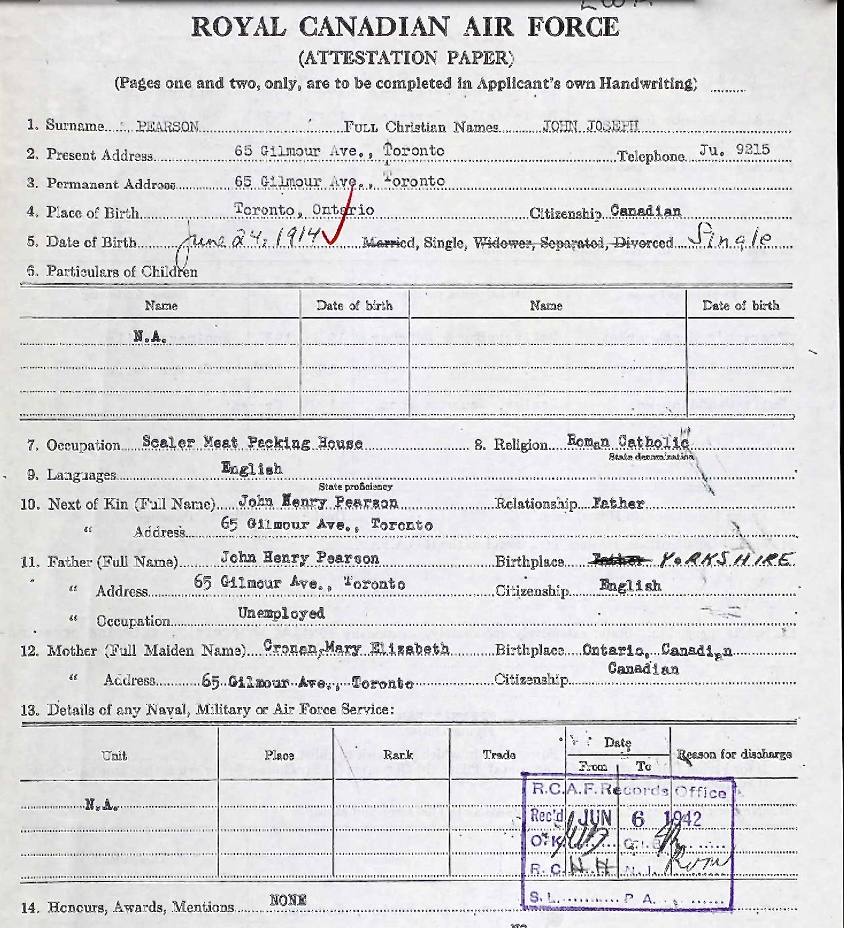 ROYAL CANADIAN AIR FORCE
(ATTESTATION PAPER)
(Pages one and two, only, are to be completed in Applicant's own Handwriting)
1. Surname PEARSON Full Christian Names JOHN JOSEPH
2. Present Address 65 Gilmour Ave., Toronto Telephone Ju. 9215
3. Permanent Address 65 Gilmour Ave., Toronto
4. Place of Birth Toronto, Ontario Citizenship Canadian
5. Date of Birth June 24, 1914 Married, Single, Widower, Separated, Divorced Single
6. Particulars of Children
Name Date of birth Name Date of birth
N.A.
7. Occupation Scaler Meat Packing House 8. Religion Roman Catholic
State denomination
9. Languages English
State proficiency
10. Next of Kin (Full Name) John Henry Pearson Relationship Father
" Address 65 Gilmour Ave., Toronto
11. Father (Full Name) John Henry Pearson Birthplace Father YORKSHIRE
" Address 65 Gilmour Ave., Toronto Citizenship English
" Occupation Unemployed
12. Mother (Full Maiden Name) Cronan, Mary Elizabeth Birthplace Ontario, Canadian
" Address 65 Gilmour Ave., Toronto Citizenship Canadian
13. Details of any Naval, Military or Air Force Service:
Unit Place Rank Trade Date Reason for discharge
From To
N.A.
R.C.A.F. Records Office
Rec'd JUN 6 1942
O.K.
R.C. N.H. N.I.
S.L. P.A.
14. Honours, Awards, Mentions NONE